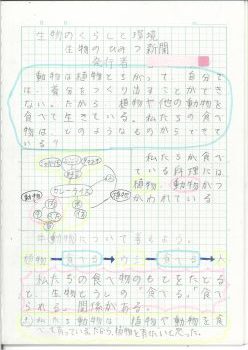 生物のくらしと環境
生物のひみつ新聞
発行者
動物は植物とちがって、自分で
は、養分をつくり出すことができ
ない。だから、植物や他の動物を
食べて生きている。私たちの食べ
物は、どのようなものからできて
いる?
私たちが食べ
ている料理には
植物、動物がつ
かわれている
カレーライス
動物
植物
牛
動物について考えよう。
植物
食べる
ウシ
食べる
人
私たちの食べ物のもとをたどる
と、生物どうしの「食べる」「食べ
られる」関係がある。
私たち動物は、植物や動物を食
べて